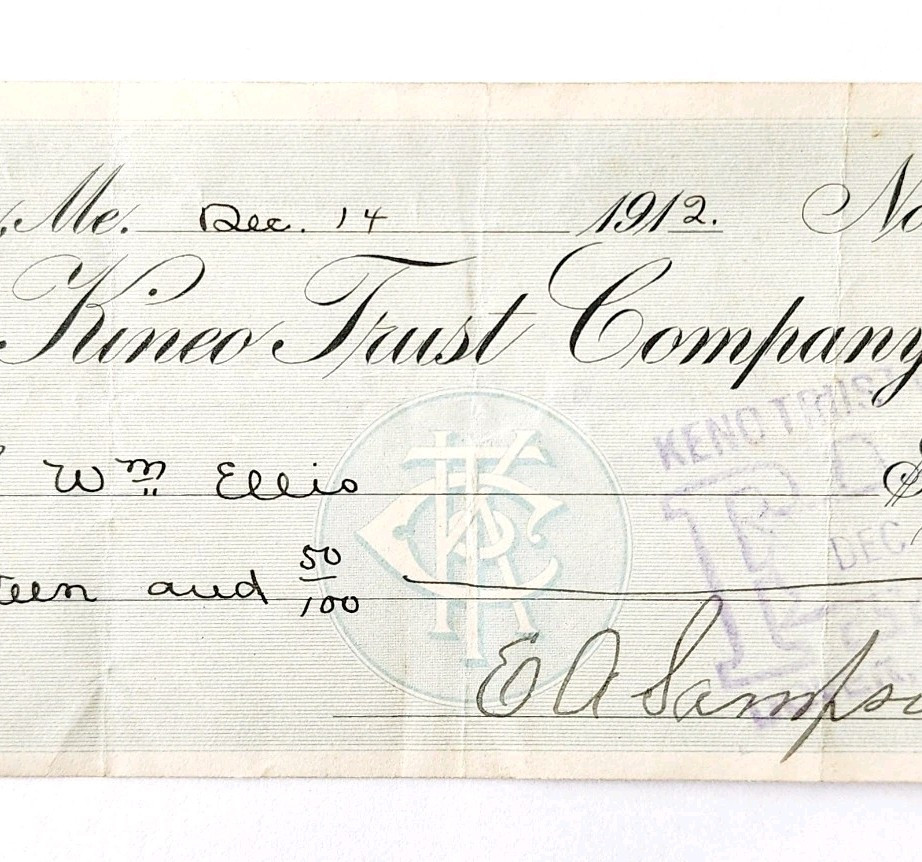 Me. Dec. 14 1912. No
Kineo Trust Company
Wm Ellis $
teen and 50/100
E A Sampso
KENO TRUST
DEC.